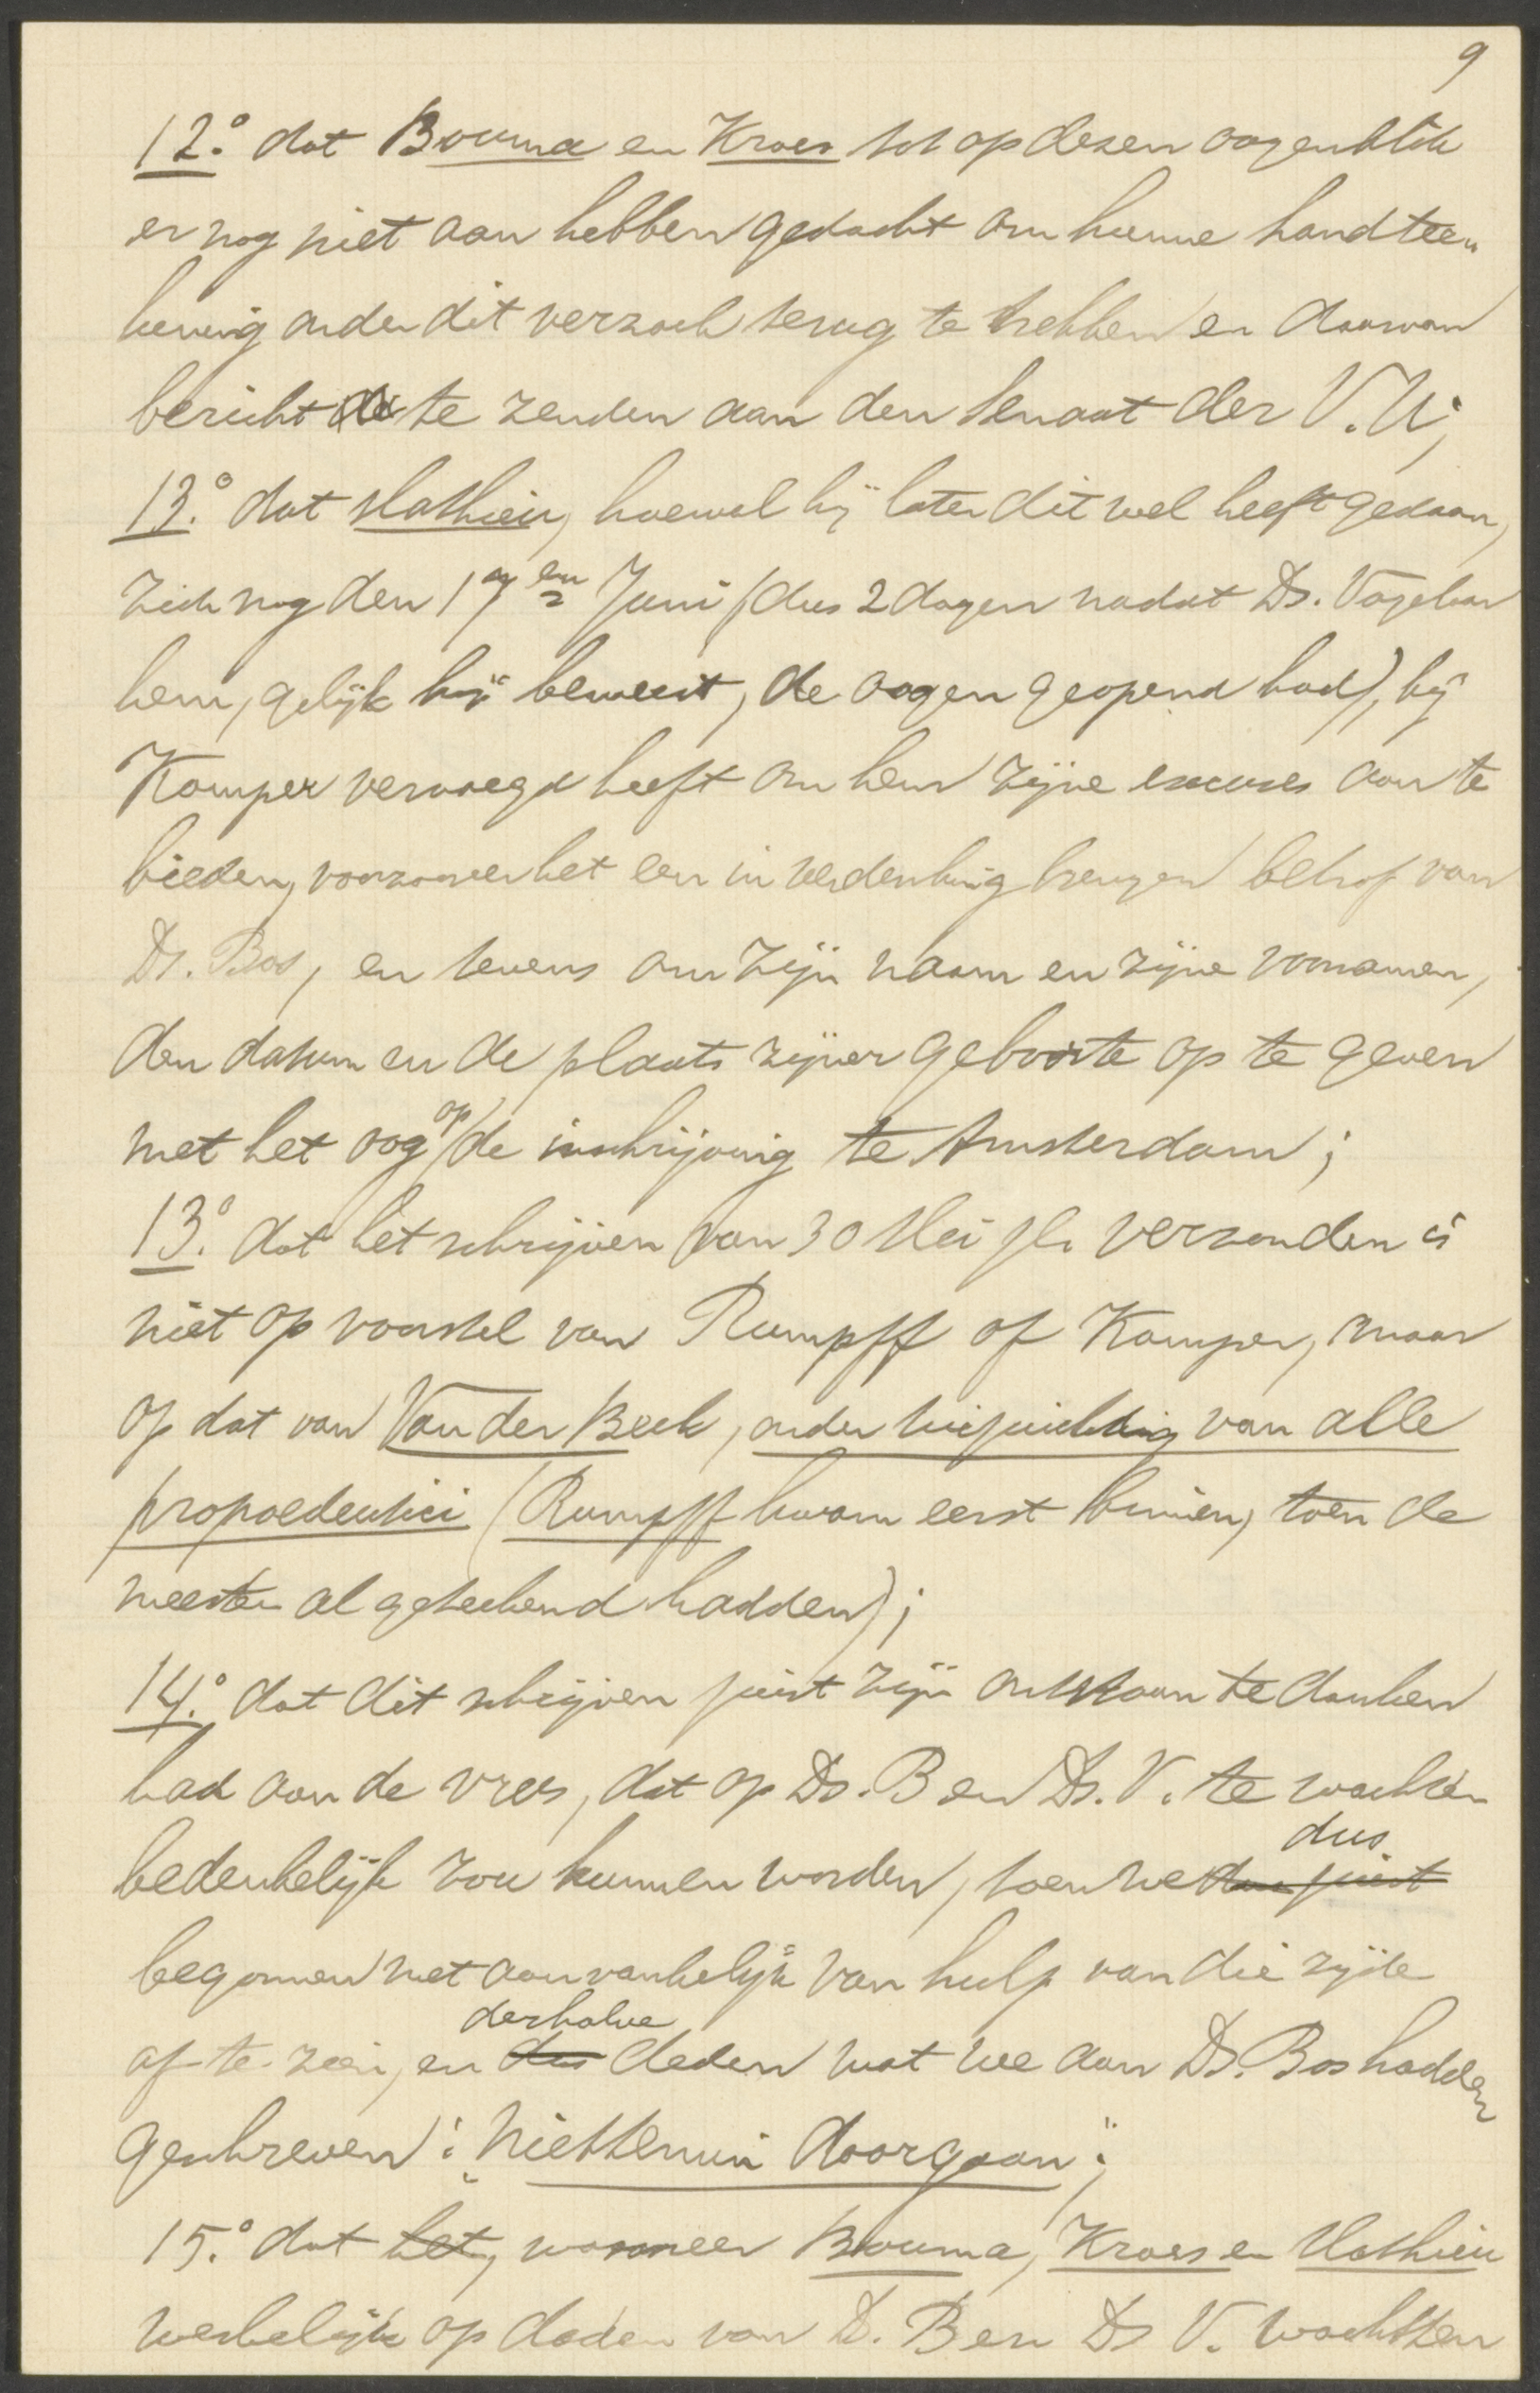 9
12.° dat Bouma en Kroes tot op dezen oogenblik
er nog niet aan hebben gedacht om hunne handtee-
kening onder dit verzoek terug te trekken en daarvan
bericht te zenden aan den Senaat der V.U;
13.° dat Mathieu, hoewel hij later dit wel heeft gedaan,
zich nog den 17en Juni (dus 2 dagen nadat Ds. Vogelaar
hem, gelijk hij beweert, de oogen geopend had), bij
Kamper vervoegd heeft om hem zijne excuses aan te
bieden, voorzoover het een in verdenking brengen betrof van
Ds. Bos, en tevens om zijn naam en zijne voornamen,
den datum en de plaats zijner geboorte op te geven
met het oog op de inschrijving te Amsterdam;
13.° dat het schrijven van 30 Mei jl. verzonden is
niet op voorstel van Rumpff of Kamper, maar
op dat van Van der Beek, onder toejuiching van alle
propaedeutici (Rumpff kwam eerst binnen, toen de
meesten al geteekend hadden);
14.° dat dit schrijven juist zijn ontstaan te danken
had aan de vrees, dat op Ds. B en Ds. V. te wachten
bedenkelijk zou kunnen worden, toen we dus juist dus
begonnen met aanvankelijk van hulp van die zijde
af te zien, en dus derhalve deden wat we aan Ds. Bos hadden
geschreven: "niettemin doorgaan";
15.° dat het, wanneer Bouma, Kroes en Mathieu
werkelijk op daden van D. B en Ds V. wachtten